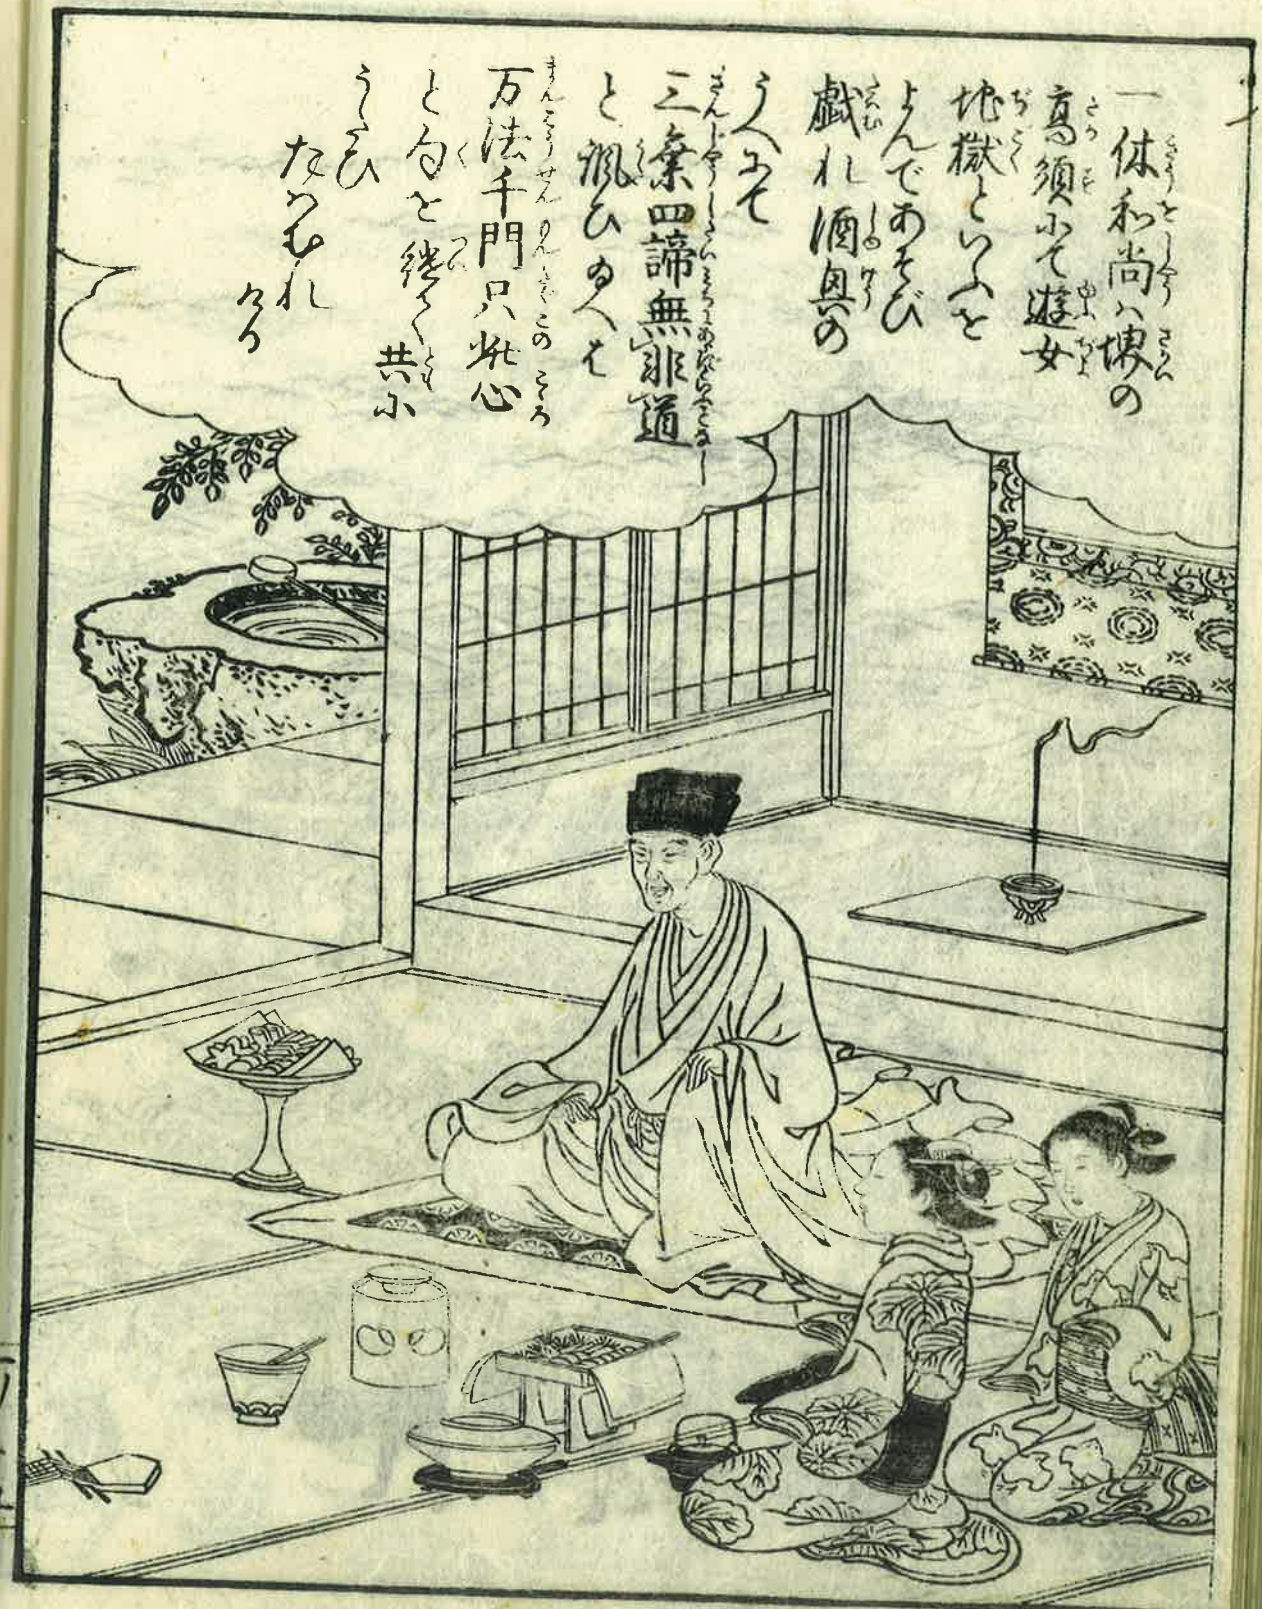 一休和尚ハ堺の
高須にて遊女
地獄といふを
よんであそび
戯れ酒興の
うへにて
三乗四諦無非道
と諷ひ給へば
万法千門只此心
と句を継て共に
うたひ
たハむれ
ける